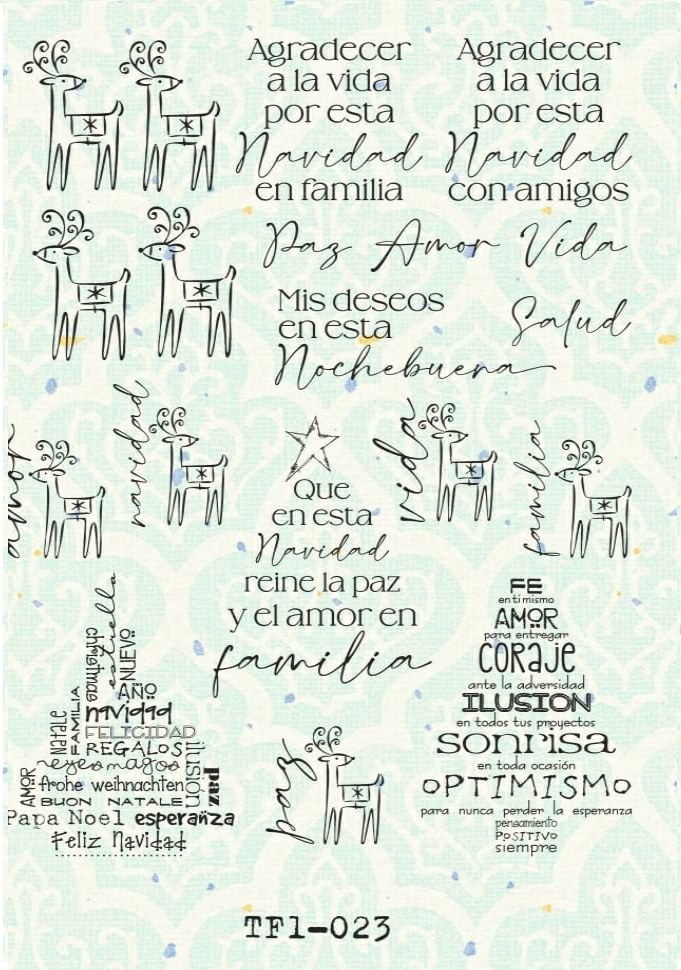 Agradecer
a la vida
por esta
Navidad
en familia
Agradecer
a la vida
por esta
Navidad
con amigos
Paz Amor Vida
Mis deseos
en esta
Nochebuena
Salud
amor
navidad
vida
familia
Que
en esta
Navidad
reine la paz
y el amor en
familia
estrella
christmas
NUEVO
AÑO
FAMILIA
NATALE
navidad
FELICIDAD
REGALOS
ilusión
reyes magos
AMOR
frohe weihnachten
paz
BUON NATALE
Papa Noel esperanza
Feliz Navidad
paz
FE
en ti mismo
AMOR
para entregar
CORAJE
ante la adversidad
ILUSION
en todos tus proyectos
sonrisa
en toda ocasión
OPTIMISMO
para nunca perder la esperanza
pensamiento
POSITIVO
siempre
TF1-023